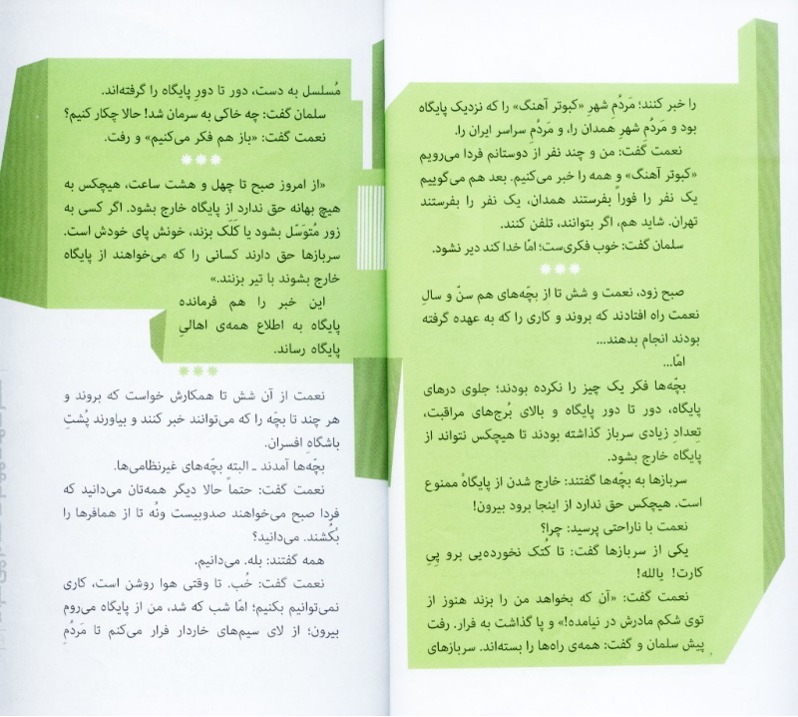 را خبر کنند؛ مَردُمِ شهرِ «کبوتر آهنگ» را که نزدیک پایگاه
بود و مَردُمِ شهرِ همدان را، و مَردُمِ سراسر ایران را.
نعمت گفت: من و چند نفر از دوستانم فردا می‌رویم
«کبوتر آهنگ» و همه را خبر می‌کنیم. بعد هم می‌گوییم
یک نفر را فوراً بفرستند همدان، یک نفر را بفرستند
تهران. شاید هم، اگر بتوانند، تلفن کنند.
سلمان گفت: خوب فکری‌ست؛ امّا خدا کند دیر نشود.
***
صبح زود، نعمت و شش تا از بچّه‌های هم سنّ و سالِ
نعمت راه افتادند که بروند و کاری را که به عهده گرفته
بودند انجام بدهند...
امّا...
بچّه‌ها فکر یک چیز را نکرده بودند؛ جلوی درهای
پایگاه، دور تا دور پایگاه و بالای بُرج‌های مراقبت،
تِعدادِ زیادی سرباز گذاشته بودند تا هیچکس نتواند از
پایگاه خارج بشود.
سربازها به بچّه‌ها گفتند: خارج شدن از پایگاهْ ممنوع
است. هیچکس حق ندارد از اینجا برود بیرون!
نعمت با ناراحتی پرسید: چرا؟
یکی از سربازها گفت: تا کُتک نخورده‌یی برو پِیِ
کارت! یالله!
نعمت گفت: «آن که بخواهد من را بزند هنوز از
توی شکم مادرش در نیامده!» و پا گذاشت به فرار. رفت
پیش سلمان و گفت: همه‌ی راه‌ها را بسته‌اند. سربازهای
مُسلسل به دست، دور تا دورِ پایگاه را گرفته‌اند.
سلمان گفت: چه خاکی به سرمان شد! حالا چکار کنیم؟
نعمت گفت: «باز هم فکر می‌کنیم» و رفت.
***
«از امروز صبح تا چهل و هشت ساعت، هیچکس به
هیچ بهانه حق ندارد از پایگاه خارج بشود. اگر کسی به
زور مُتوَسّل بشود یا کَلَک بزند، خونش پای خودش است.
سربازها حق دارند کسانی را که می‌خواهند از پایگاه
خارج بشوند با تیر بزنند.»
این خبر را هم فرمانده
پایگاه به اطلاع همه‌ی اهالیِ
پایگاه رساند.
***
نعمت از آن شش تا همکارش خواست که بروند و
هر چند تا بچّه را که می‌توانند خبر کنند و بیاورند پُشتِ
باشگاهِ افسران.
بچّه‌ها آمدند ـ البته بچّه‌های غیرنظامی‌ها.
نعمت گفت: حتماً حالا دیگر همه‌تان می‌دانید که
فردا صبح می‌خواهند صدوبیست ونُه تا از همافرها را
بُکُشند. می‌دانید؟
همه گفتند: بله. می‌دانیم.
نعمت گفت: خُب. تا وقتی هوا روشن است، کاری
نمی‌توانیم بکنیم؛ امّا شب که شد، من از پایگاه می‌روم
بیرون؛ از لای سیم‌های خاردار فرار می‌کنم تا مَردُمِ